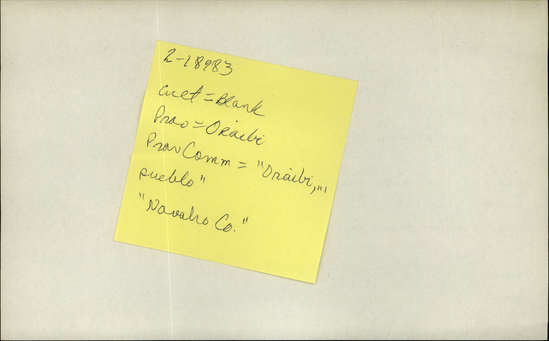 2-18983
Cult = Blank
Prov = Oraibi
Prov Comm = "Oraibi,"
pueblo"
"Navaho Co."